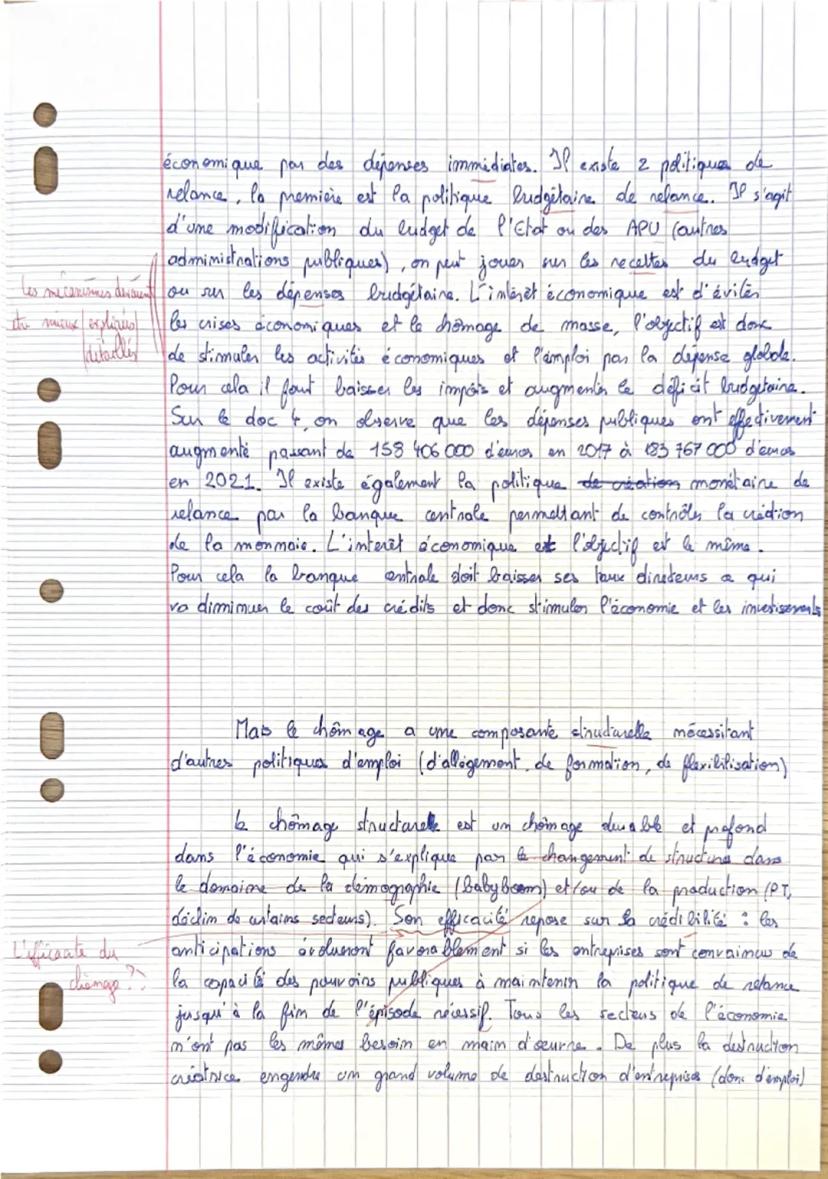 économique par des dépenses immédiates. Il existe 2 politiques de
relance, la première est la politique budgétaire de relance. Il s'agit
d'une modification du budget de l'Etat ou des APU (autres
administrations publiques), on peut jouer sur les recettes du budget
Les mécanismes devraient
être mieux expliqués/
détaillés
ou sur les dépenses budgétaire. L'intérêt économique est d'éviter
les crises économiques et le chômage de masse, l'objectif est donc
de stimuler les activités économiques et l'emploi par la dépense globale.
Pour cela il faut baisser les impôts et augmenter le déficit budgetaire.
Sur le doc 4, on observe que les dépenses publiques ont effectivement
augmenté passant de 158 406 000 d'euros en 2017 à 183 767 000 d'euros
en 2021. Il existe également la politique de création monétaire de
relance par la banque centrale permettant de contrôler la création
de la monnaie. L'interêt économique et l'objectif est le même.
Pour cela la banque centrale doit baisser ses taux directeurs ce qui
va dimminuer le coût des crédits et donc stimuler l'économie et les investissements
Mais le chômage a une composante structurelle nécessitant
d'autres politiques d'emploi (d'allégement, de formation, de flexibilisation)
Le chômage structurel est un chômage durable et profond
dans l'économie qui s'explique par le changement de structure dans
le domaine de la démographie (babyboom) et/ou de la production (PT,
déclin de certains secteurs). Son efficacité repose sur la crédibilité : les
L'efficacité du
chômage ??
anticipations évolueront favorablement si les entreprises sont convaincus de
la capacité des pouvoirs publiques à maintenir la politique de relance
jusqu'à la fin de l'épisode récessif. Tous les secteurs de l'économie
n'ont pas les mêmes besoin en main d'œuvre. De plus la destruction
créatrice engendre un grand volume de destruction d'entreprises (donc d'emploi)